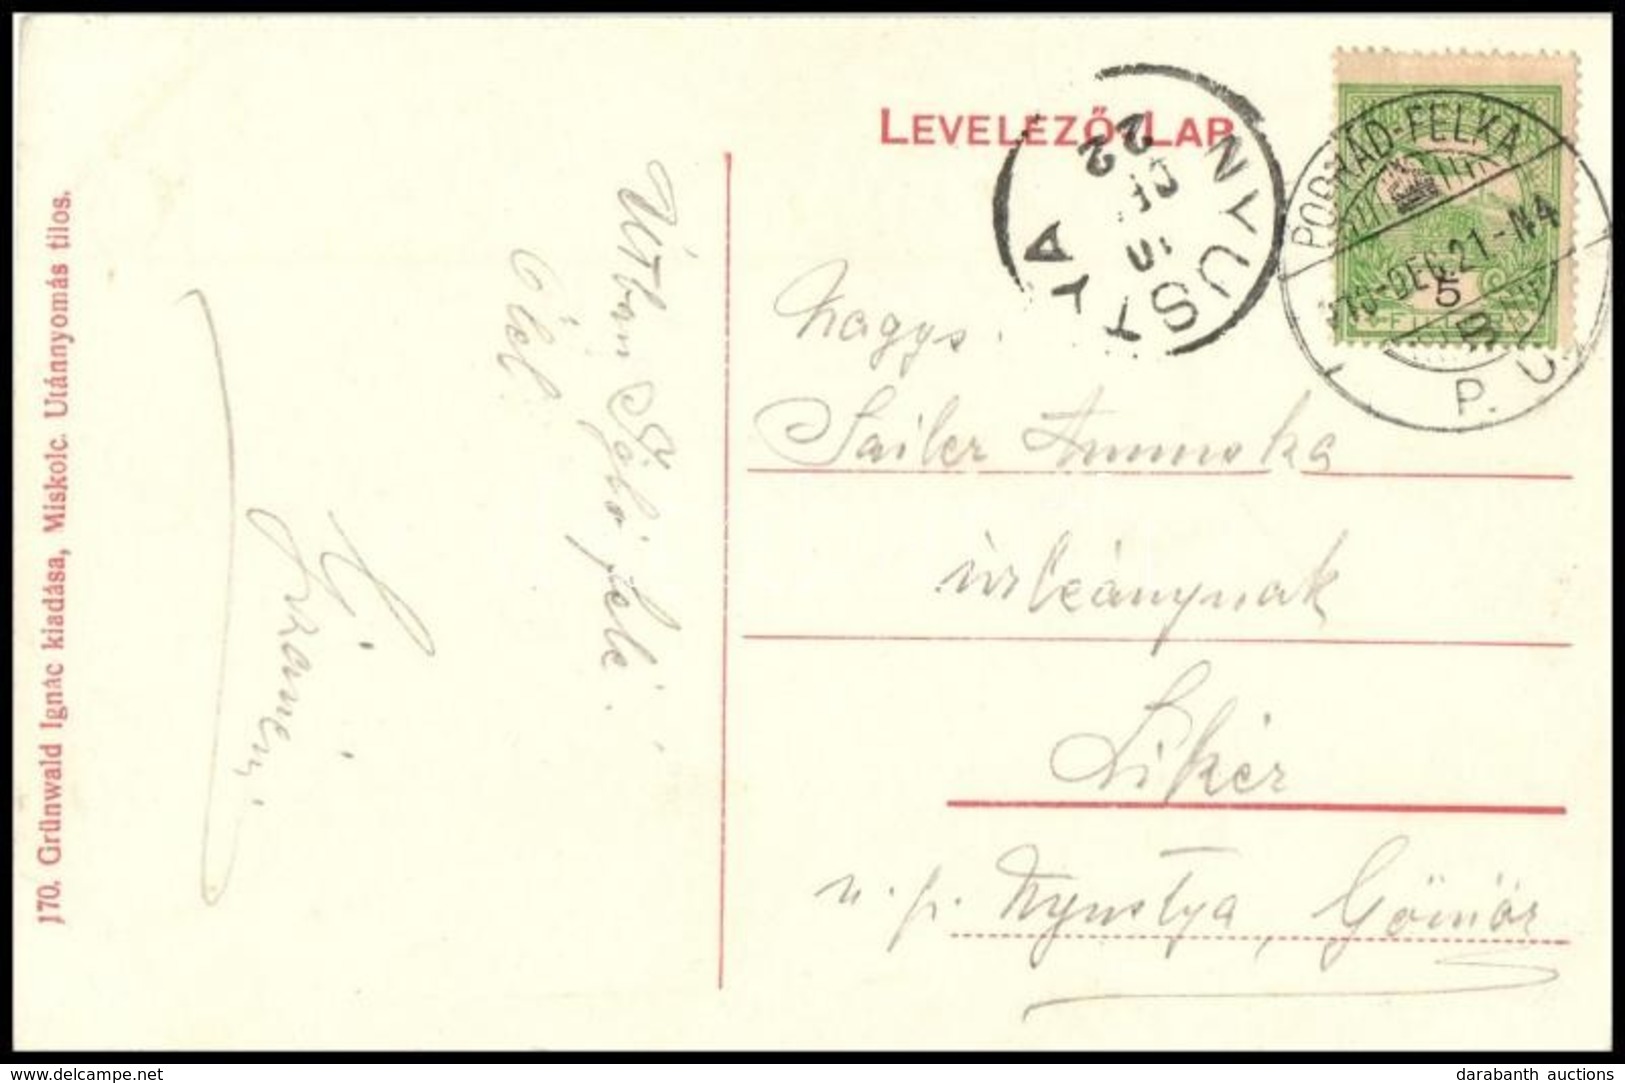 LEVELEZŐ-LAP
NYUSTYA
22
DE
POPRÁD-FELKA
DEC. 21-N4
5
B
P. U.
170. Grünwald Ignác kiadása, Miskolc. Utánnyomás tilos.
Útban
felé.
Ölel
Nagys.
Sailer Annuska
úrleánynak
Likér
u. p. Nyustya, Gömör
www.delcampe.net
darabanth auctions